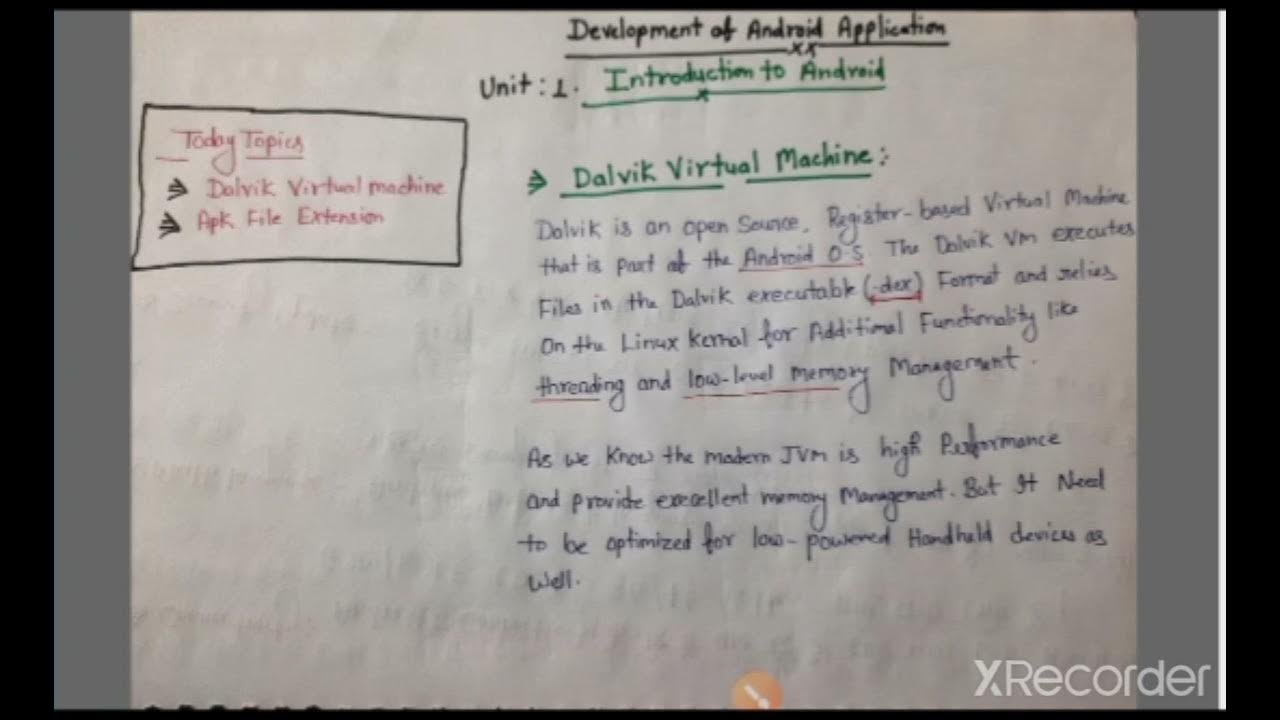 Development of Android Application
Unit : 1. Introduction to Android
Today Topics
⇒ Dalvik Virtual machine
⇒ Apk File Extension
⇒ Dalvik Virtual Machine :
Dalvik is an open Source, Register-based Virtual Machine
that is part of the Android O.S. The Dalvik Vm executes
Files in the Dalvik executable (.dex) Format and relies
On the Linux Kernal for Additimal Functionality like
threading and low-level memory Management.
As we know the modern JVM is high Performance
and provide execellent memory Management. But It Need
to be optimized for low-powered Handheld devices as
well.
XRecorder